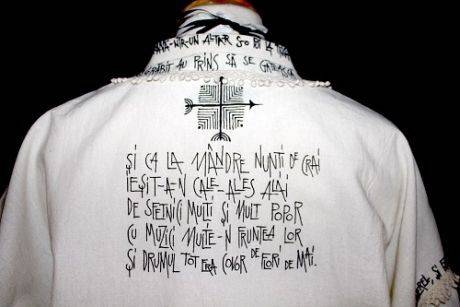 ASA-NTR-UN ALTAR S-O PUI LA
GRĂBIT AU PRINS SĂ SE GĂTEASCĂ
ȘI CA LA MÂNDRE NUNȚI DE CRAI
IEȘIT-A-N CALE-ALES ALAI
DE SFETNICI MULȚI ȘI MULT POPOR
CU MUZICI MULTE-N FRUNTEA LOR
ȘI DRUMUL TOT ERA COVOR DE FLORI DE MAI.